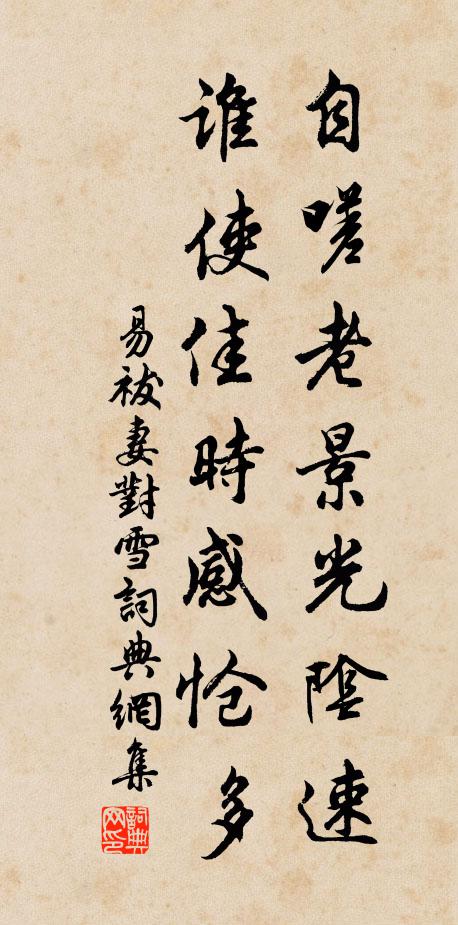 自嗟老景光陰速
誰使佳時感愴多
易祓妻對雪詞典網集
詞典網印